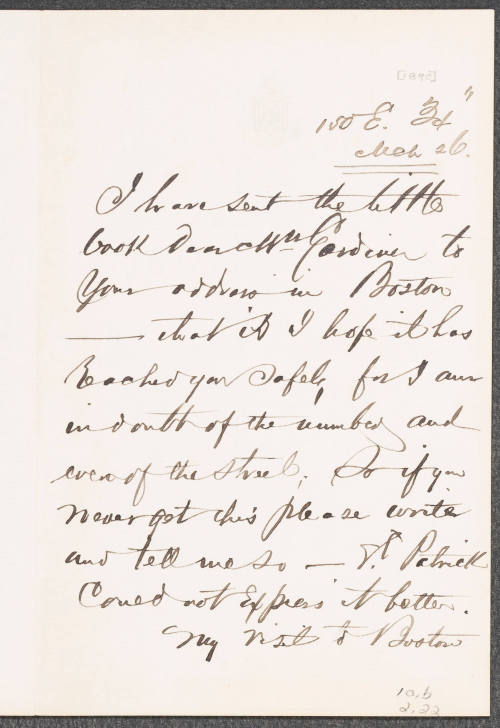 [1895]
150 E. 34"
Mch 26.
I have sent the little
book Dear Mrs Gardiner to
Your address in Boston
— that is I hope it has
reached you safely, for I am
in doubt of the number and
even of the street; So if you
never get this please write
and tell me so — St. Patrick
Could not Express it better.
My visit to Boston
10.6
2.22